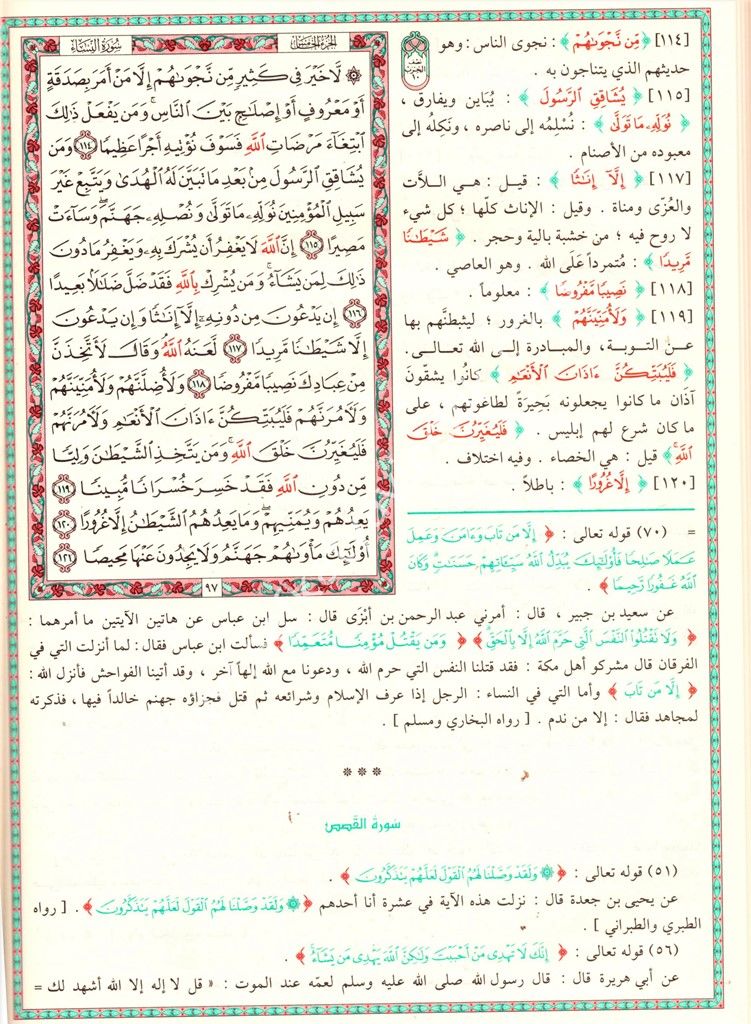 [١١٤] ﴿ مِّن نَّجْوَىٰهُمْ ﴾ : نجوى الناس : وهو
حديثهم الذي يتناجون به .
[١١٥] ﴿ يُشَاقِقِ ٱلرَّسُولَ ﴾ : يُباين ويفارق ،
﴿ نُوَلِّهِۦ مَا تَوَلَّىٰ ﴾ : نُسْلِمُه إلى ناصره ، ونَكِلُه إلى
معبوده من الأصنام .
[١١٧] ﴿ إِلَّآ إِنَٰثًا ﴾ : قيـل : هـي الـلاَّت
والعُزّى ومناة . وقيل : الإناث كلّها ؛ كل شيء
لا روح فيه ؛ من خشبة بالية وحجر . ﴿ شَيْطَٰنًا
مَّرِيدًا ﴾ : مُتمرداً عَلَى الله . وهو العاصي .
[١١٨] ﴿ نَصِيبًا مَّفْرُوضًا ﴾ : معلوماً .
[١١٩] ﴿ وَلَأُمَنِّيَنَّهُمْ ﴾ بالغرور ؛ ليثبطنَّهم بها
عـن التـوبـة، والمبـادرة إلـى الله تعـالـى .
﴿ فَلَيُبَتِّكُنَّ ءَاذَانَ ٱلْأَنْعَٰمِ ﴾ كانُوا يشقّون
آذَان ما كانوا يجعلونه بَحِيرَةً لطاغوتهم ، على
ما كان شرع لهم إبليس . ﴿ فَلَيُغَيِّرُنَّ خَلْقَ
ٱللَّهِ ﴾ قيل : هي الخصاء . وفيه اختلاف .
[١٢٠] ﴿ إِلَّا غُرُورًا ﴾ : باطلاً .
الجزء الخامس
سورة النساء
۞ لَّا خَيْرَ فِى كَثِيرٍ مِّن نَّجْوَىٰهُمْ إِلَّا مَنْ أَمَرَ بِصَدَقَةٍ
أَوْ مَعْرُوفٍ أَوْ إِصْلَٰحٍۭ بَيْنَ ٱلنَّاسِ ۚ وَمَن يَفْعَلْ ذَٰلِكَ
ٱبْتِغَآءَ مَرْضَاتِ ٱللَّهِ فَسَوْفَ نُؤْتِيهِ أَجْرًا عَظِيمًا ١١٤ وَمَن
يُشَاقِقِ ٱلرَّسُولَ مِنۢ بَعْدِ مَا تَبَيَّنَ لَهُ ٱلْهُدَىٰ وَيَتَّبِعْ غَيْرَ
سَبِيلِ ٱلْمُؤْمِنِينَ نُوَلِّهِۦ مَا تَوَلَّىٰ وَنُصْلِهِۦ جَهَنَّمَ ۖ وَسَآءَتْ
مَصِيرًا ١١٥ إِنَّ ٱللَّهَ لَا يَغْفِرُ أَن يُشْرَكَ بِهِۦ وَيَغْفِرُ مَا دُونَ
ذَٰلِكَ لِمَن يَشَآءُ ۚ وَمَن يُشْرِكْ بِٱللَّهِ فَقَدْ ضَلَّ ضَلَٰلًۢا بَعِيدًا
١١٦ إِن يَدْعُونَ مِن دُونِهِۦٓ إِلَّآ إِنَٰثًا وَإِن يَدْعُونَ
إِلَّا شَيْطَٰنًا مَّرِيدًا ١١٧ لَّعَنَهُ ٱللَّهُ ۘ وَقَالَ لَأَتَّخِذَنَّ
مِنْ عِبَادِكَ نَصِيبًا مَّفْرُوضًا ١١٨ وَلَأُضِلَّنَّهُمْ وَلَأُمَنِّيَنَّهُمْ
وَلَءَامُرَنَّهُمْ فَلَيُبَتِّكُنَّ ءَاذَانَ ٱلْأَنْعَٰمِ وَلَءَامُرَنَّهُمْ
فَلَيُغَيِّرُنَّ خَلْقَ ٱللَّهِ ۚ وَمَن يَتَّخِذِ ٱلشَّيْطَٰنَ وَلِيًّا
مِّن دُونِ ٱللَّهِ فَقَدْ خَسِرَ خُسْرَانًا مُّبِينًا ١١٩
يَعِدُهُمْ وَيُمَنِّيهِمْ ۖ وَمَا يَعِدُهُمُ ٱلشَّيْطَٰنُ إِلَّا غُرُورًا ١٢٠
أُو۟لَٰٓئِكَ مَأْوَىٰهُمْ جَهَنَّمُ وَلَا يَجِدُونَ عَنْهَا مَحِيصًا ١٢١
٩٧
= (٧٠) قوله تعالى : ﴿ إِلَّا مَن تَابَ وَءَامَنَ وَعَمِلَ
عَمَلًا صَٰلِحًا فَأُو۟لَٰٓئِكَ يُبَدِّلُ ٱللَّهُ سَيِّـَٔاتِهِمْ حَسَنَٰتٍ ۗ وَكَانَ
ٱللَّهُ غَفُورًا رَّحِيمًا ﴾ .
عن سعيد بن جبير ، قال : أمرني عبد الرحمن بن أَبْزَى قال : سل ابن عباس عن هاتين الآيتين ما أمرهما :
﴿ وَلَا تَقْتُلُوا۟ ٱلنَّفْسَ ٱلَّتِى حَرَّمَ ٱللَّهُ إِلَّا بِٱلْحَقِّ ﴾ ﴿ وَمَن يَقْتُلْ مُؤْمِنًا مُّتَعَمِّدًا ﴾ فسألت ابن عباس فقال : لما أنزلت التي في
الفرقان قال مشركو أهل مكة : فقد قتلنا النفس التي حرم الله ، ودعونا مع الله إلهاً آخر ، وقد أتينا الفواحش فأنزل الله :
﴿ إِلَّا مَن تَابَ ﴾ وأما التي في النساء : الرجل إذا عرف الإسلام وشرائعه ثم قتل فجزاؤه جهنم خالداً فيها ، فذكرته
لمجاهد فقال : إلا من ندم . [ رواه البخاري ومسلم ] .
***
سورة القصص
(٥١) قوله تعالى : ﴿ ۞ وَلَقَدْ وَصَّلْنَا لَهُمُ ٱلْقَوْلَ لَعَلَّهُمْ يَتَذَكَّرُونَ ﴾ .
عن يحيى بن جعدة قال : نزلت هذه الآية في عشرة أنا أحدهم ﴿ ۞ وَلَقَدْ وَصَّلْنَا لَهُمُ ٱلْقَوْلَ لَعَلَّهُمْ يَتَذَكَّرُونَ ﴾ . [ رواه
الطبري والطبراني ] .
(٥٦) قوله تعالى : ﴿ إِنَّكَ لَا تَهْدِى مَنْ أَحْبَبْتَ وَلَٰكِنَّ ٱللَّهَ يَهْدِى مَن يَشَآءُ ﴾ .
عن أبي هريرة قال : قال رسول الله صلى الله عليه وسلم لعمّه عند الموت : « قل لا إله إلا الله أشهد لك =